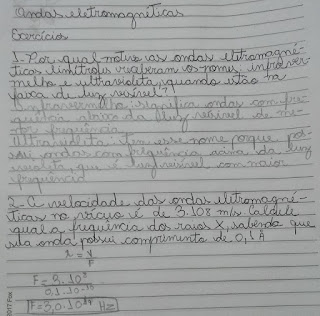 Ondas eletromagnéticas
Exercícios
1-Por qual motivo as ondas eletromagné-
ticas limítrofes receberam os nomes infraver-
melho e ultravioleta, quando estão na
faixa de luz visível?
Infravermelho: significa ondas com fre-
quência abaixo da luz visível de me-
nor frequência.
Ultravioleta: tem esse nome porque pos-
sui ondas com frequência acima da luz
violeta, que é luz visível com maior
frequência
2- A velocidade das ondas eletromagné-
ticas no vácuo é de 3.108 m/s. Calcule
qual a frequência dos raios X, sabendo que
sua onda possui comprimento de 0,1 Å
λ = v
F
F = 3.10⁸
0,1.10⁻¹⁰
F = 3,0.10¹⁹ Hz
2017 Fox